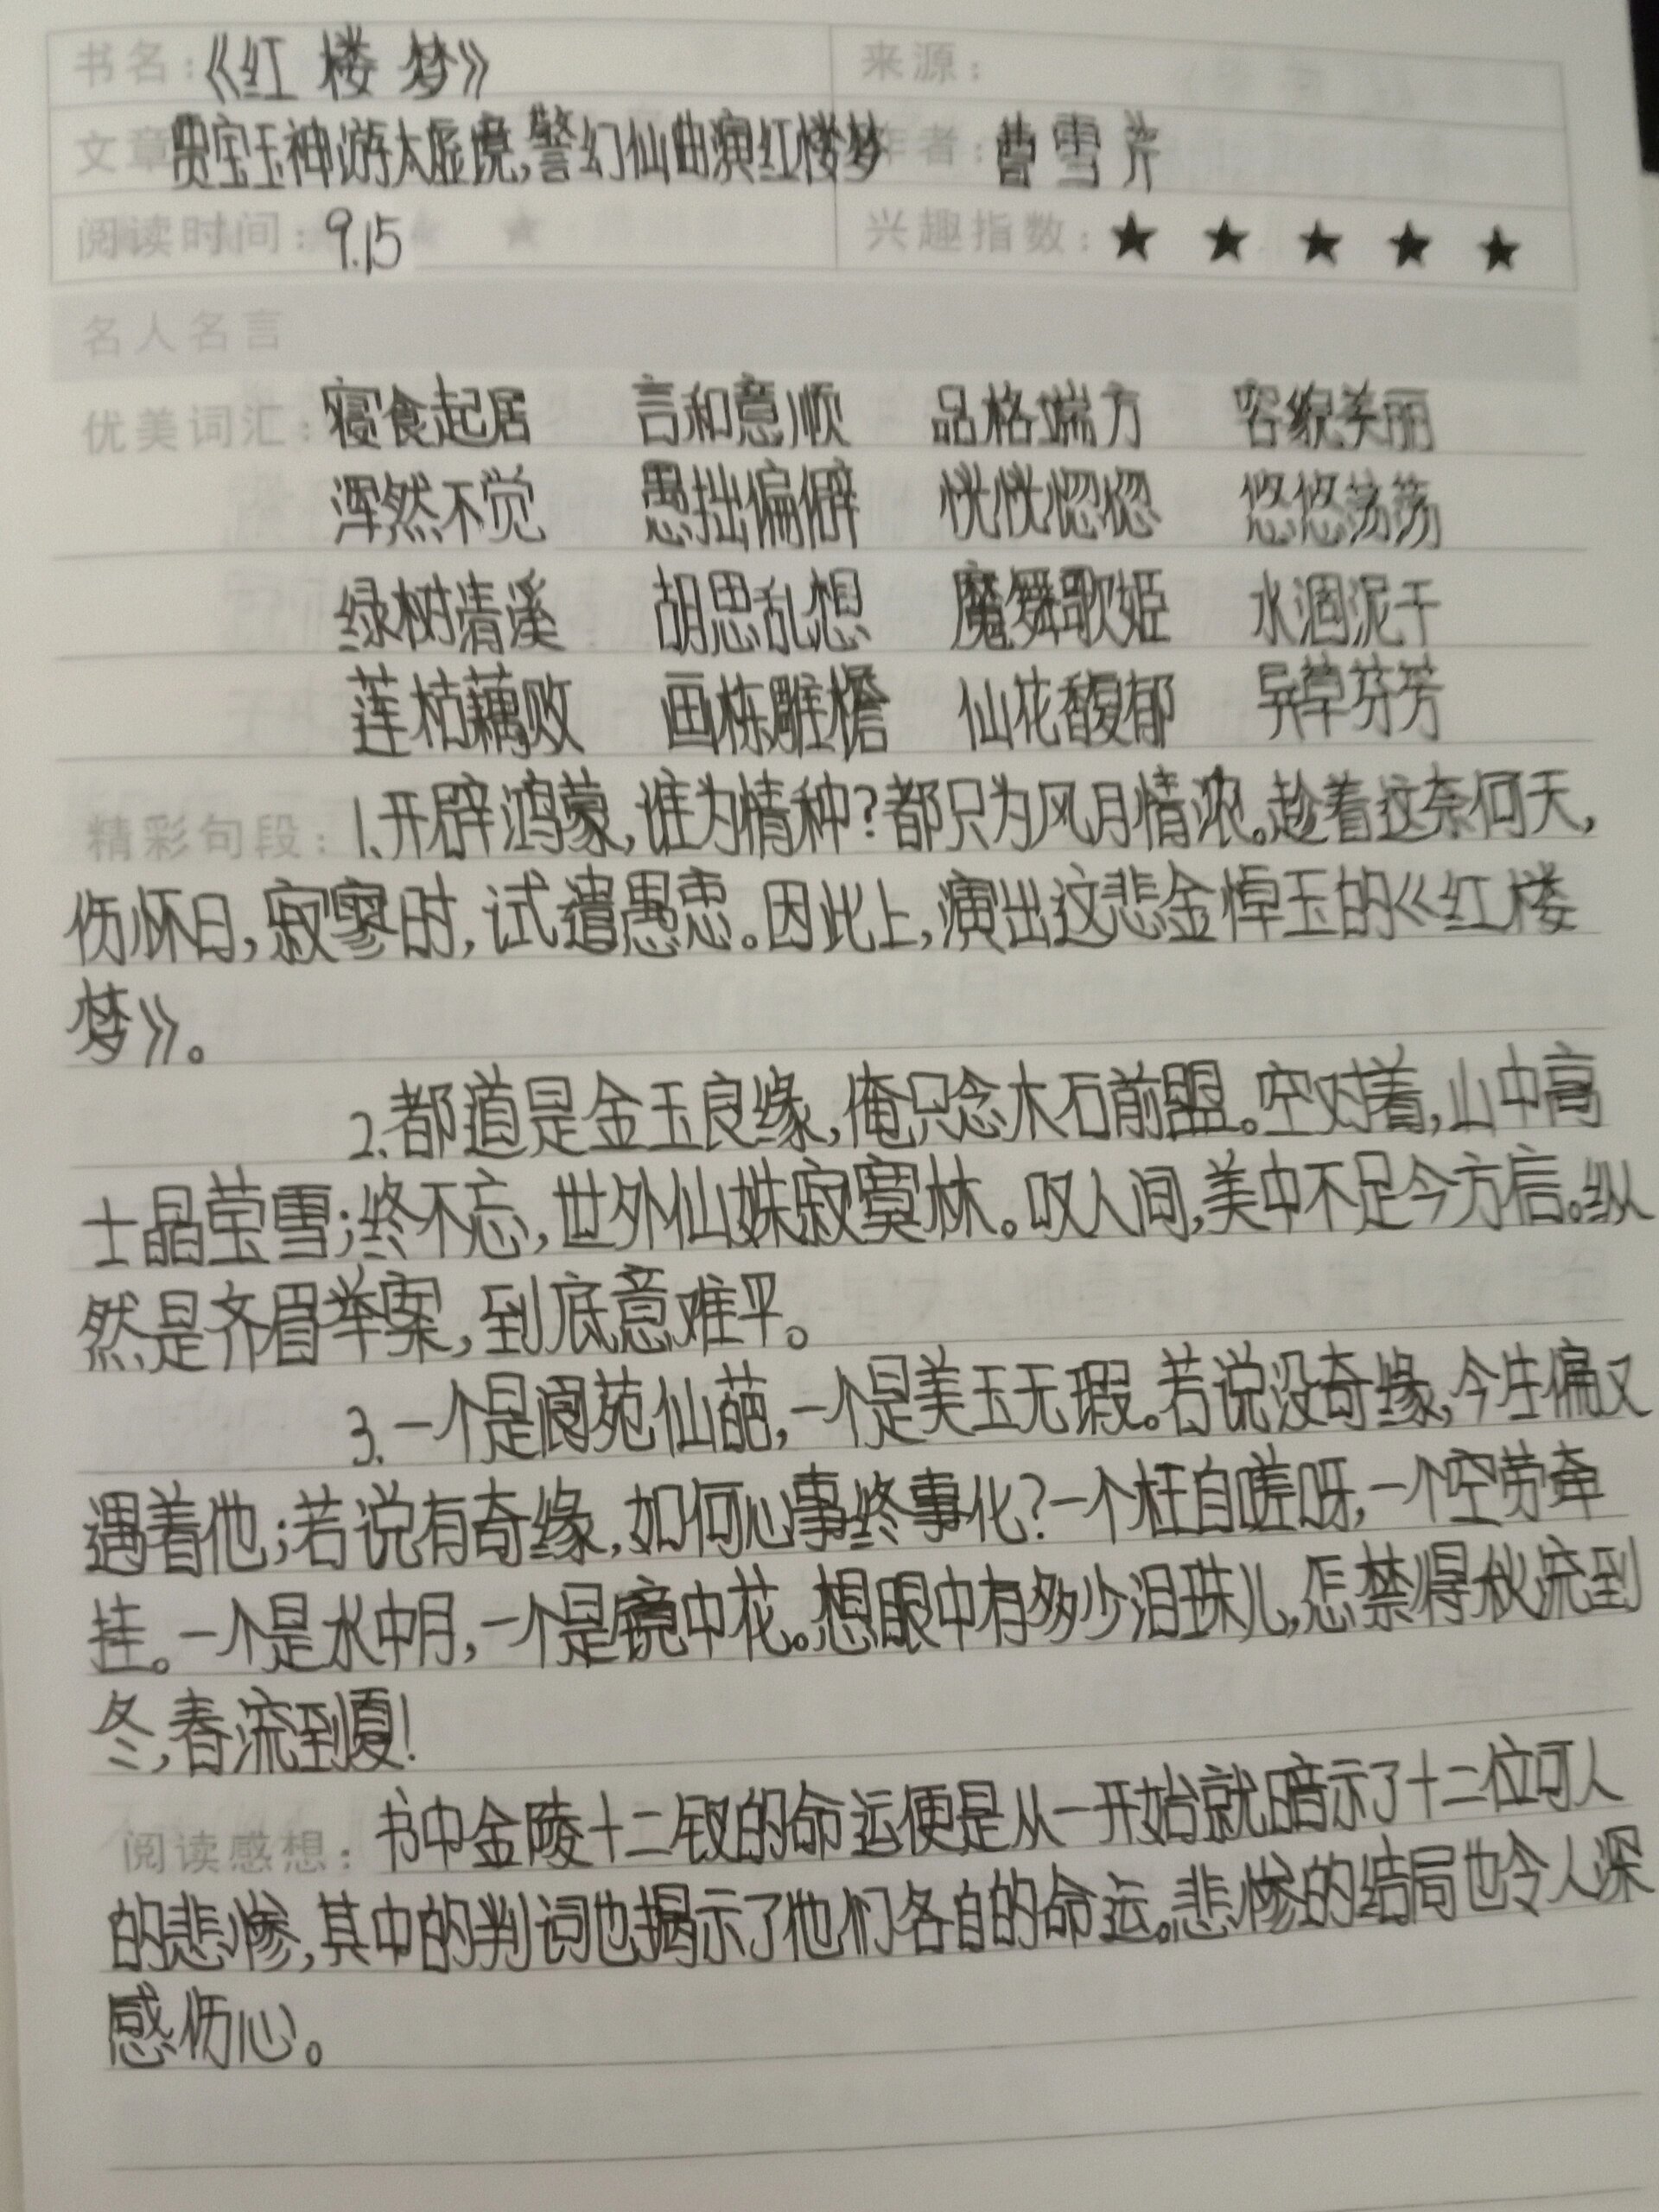 书名：《红楼梦》 来源：
文章 贾宝玉神游太虚境，警幻仙曲演红楼梦 作者：曹雪芹
阅读时间：9.15 兴趣指数：★ ★ ★ ★ ★
名人名言
优美词汇：寝食起居 言和意顺 品格端方 容貌美丽
浑然不觉 愚拙偏僻 恍恍惚惚 悠悠荡荡
绿树清溪 胡思乱想 魔舞歌姬 水涸泥干
莲枯藕败 画栋雕檐 仙花馥郁 异草芬芳
精彩句段：1.开辟鸿蒙，谁为情种？都只为风月情浓。趁着这奈何天，
伤怀日，寂寥时，试遣愚衷。因此上，演出这悲金悼玉的《红楼
梦》。
2.都道是金玉良缘，俺只念木石前盟。空对着，山中高
士晶莹雪；终不忘，世外仙姝寂寞林。叹人间，美中不足今方信。纵
然是齐眉举案，到底意难平。
3.一个是阆苑仙葩，一个是美玉无瑕。若说没奇缘，今生偏又
遇着他；若说有奇缘，如何心事终事化？一个枉自嗟呀，一个空劳牵
挂。一个是水中月，一个是镜中花。想眼中有多少泪珠儿，怎禁得秋流到
冬，春流到夏！
阅读感想：书中金陵十二钗的命运便是从一开始就暗示了十二位可人
的悲惨，其中的判词也揭示了他们各自的命运。悲惨的结局也令人深
感伤心。